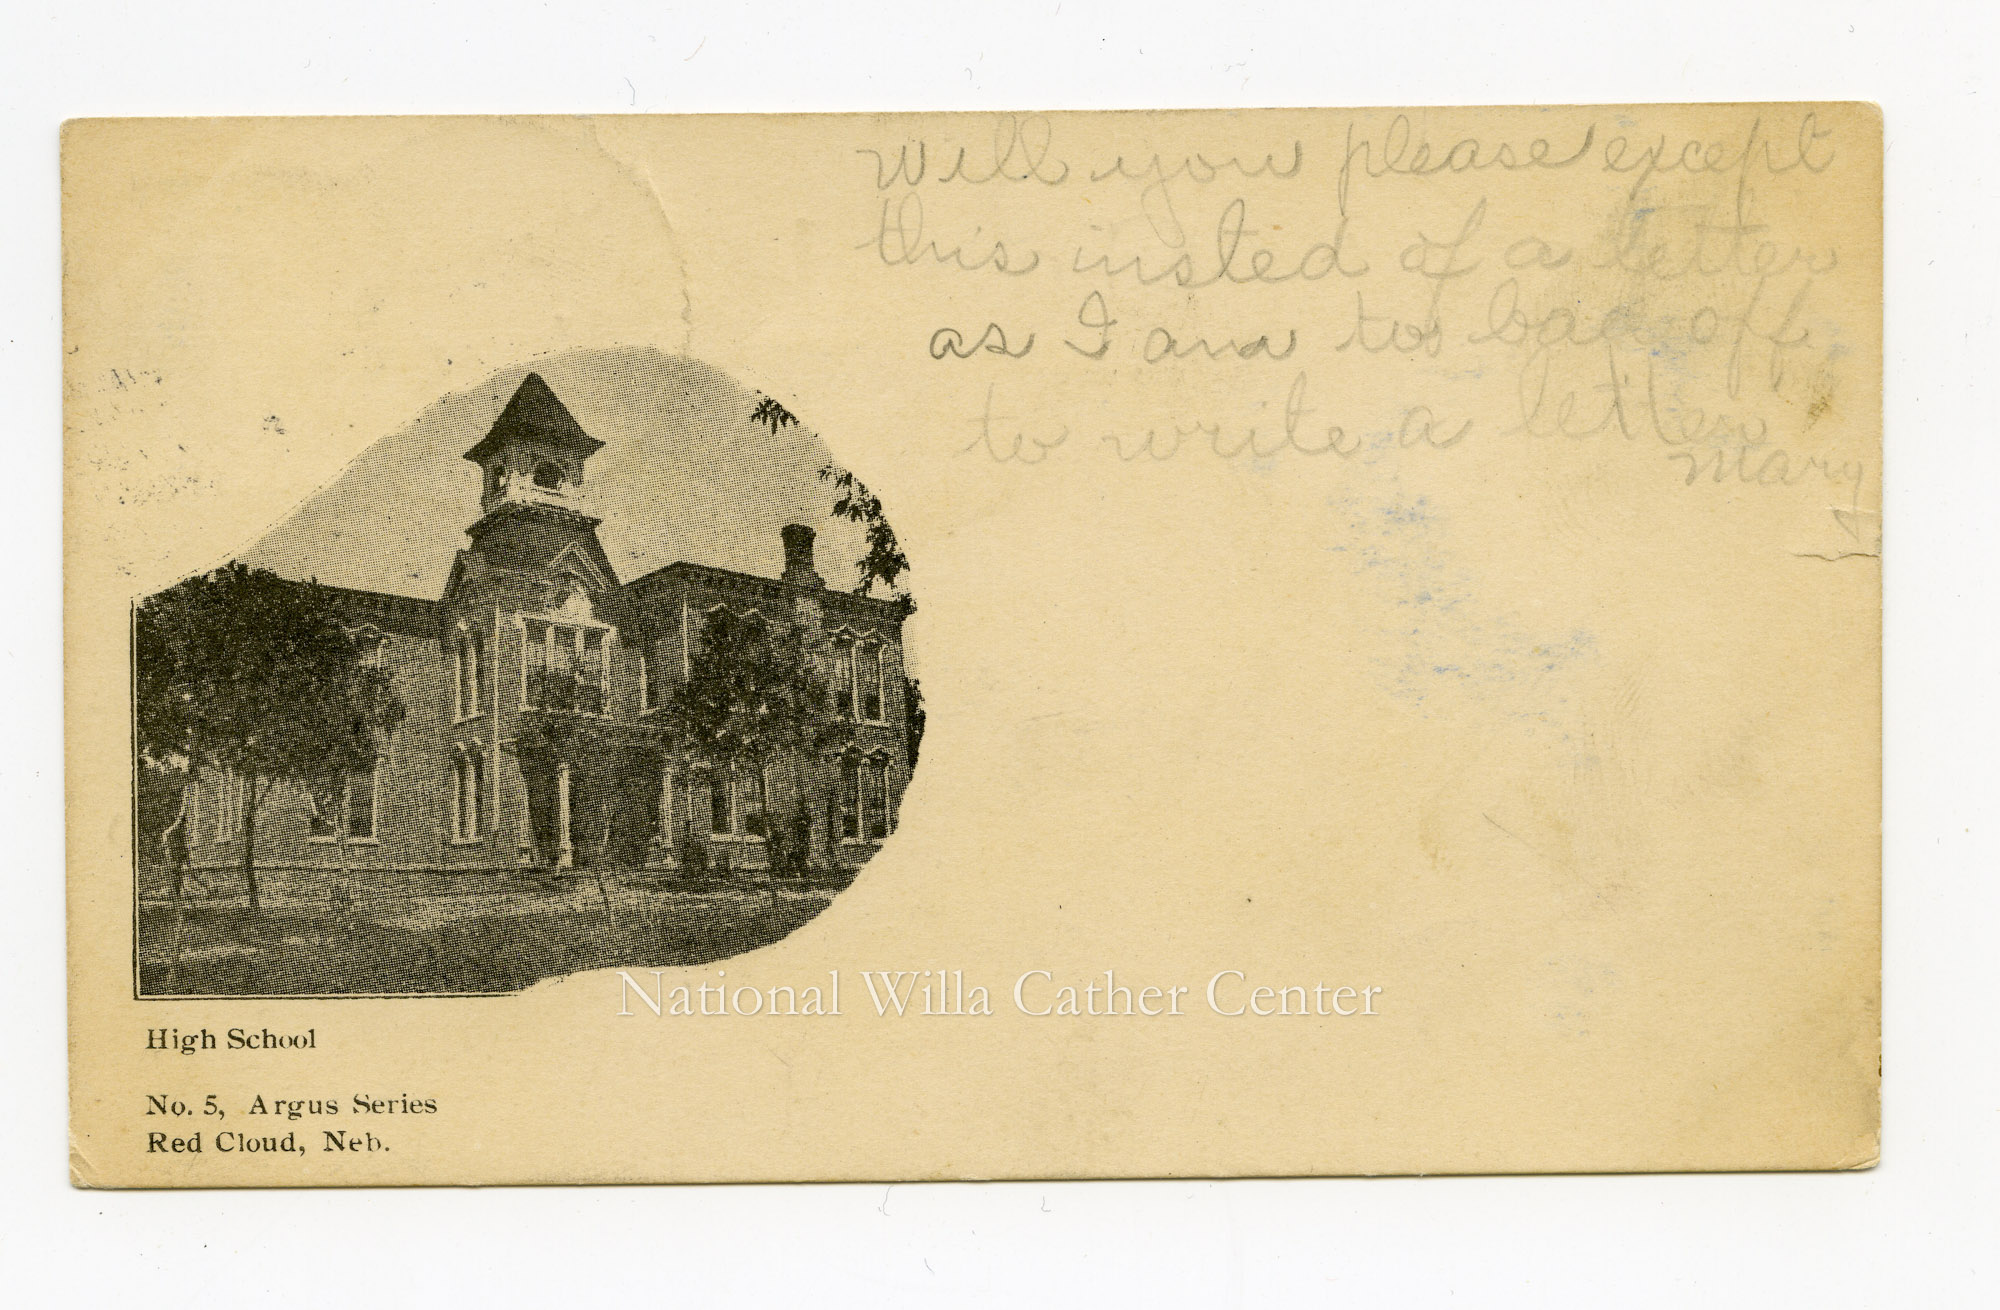 will you please except
this insted of a letter
as I am to bad off
to write a letter
Mary
National Willa Cather Center
High School
No. 5, Argus Series
Red Cloud, Neb.